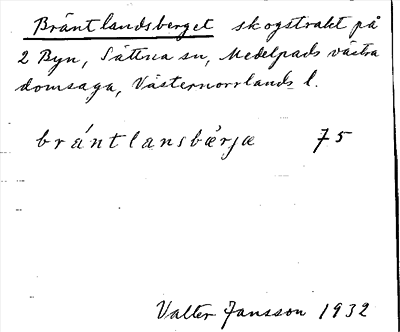 Bräntlandsberget skogstrakt på
2 Byn, Sättna sn, Medelpads västra
domsaga, Västernorrlands l.
brántlansbærjæ 75
Valter Jansson 1932